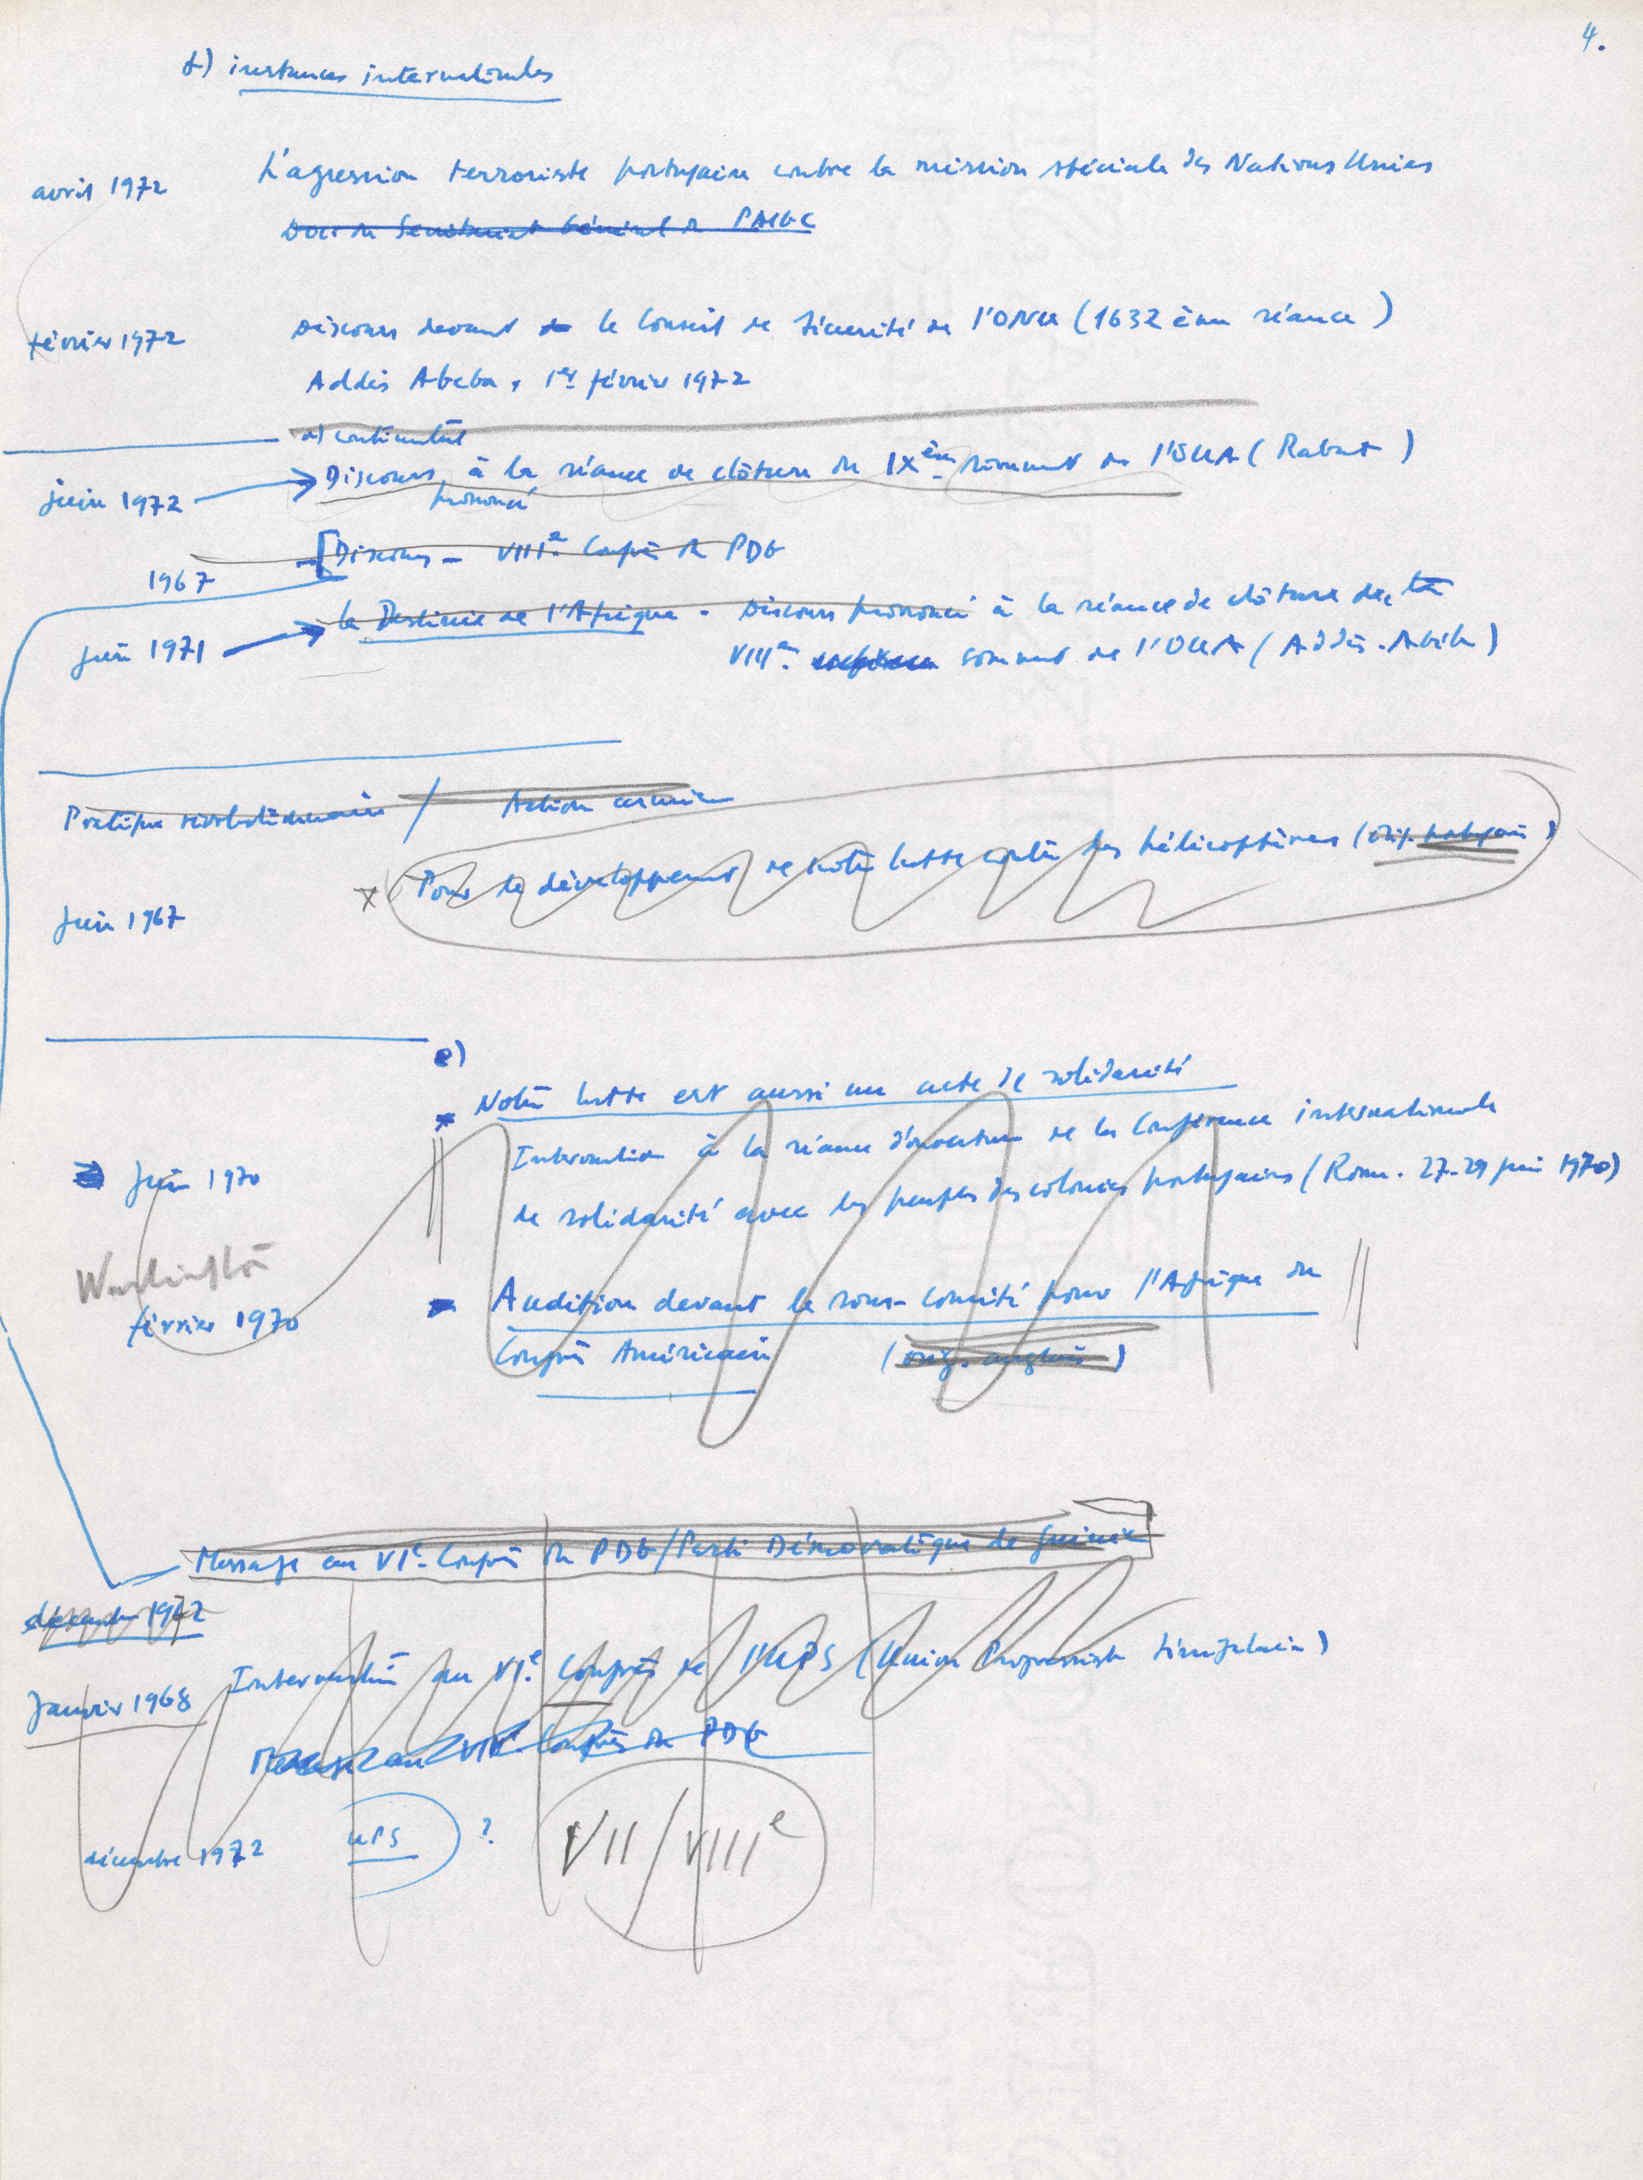 4.
d) instances internationales
avril 1972 L'agression terroriste portugaise contre la mission spéciale des Nations Unies
Doc. du Secrétariat Général du PAIGC
février 1972 Discours devant le Conseil de Sécurité de l'ONU (1632 ème séance)
Addis Abeba, 1er février 1972
continentales
juin 1972 Discours à la séance de clôture du IXème sommet de l'OUA (Rabat)
prononcé
1967 Discours - VIIIe Congrès du PDG
juin 1971 le Destinée de l'Afrique - Discours prononcé à la séance de clôture de la
VIIIe sommet de l'OUA (Addis-Abeba)
Pratique révolutionnaire / Action armée
Juin 1967 Pour le développement de notre lutte contre les hélicoptères (orig. portugais)
e)
Notre lutte est aussi un acte de solidarité
Juin 1970 Intervention à la séance d'ouverture de la Conférence internationale
de solidarité avec les peuples des colonies portugaises (Rome. 27-29 juin 1970)
Washington
février 1970 Audition devant le sous-comité pour l'Afrique du
Congrès Américain (orig. anglais)
Message au VIe Congrès du PDG/Parti Démocratique de Guinée
décembre 1972
Janvier 1968 Intervention au VIe Congrès de l'UPS (Union Progressiste Sénégalaise)
Message au VIIe Congrès du PDG
décembre 1972 UPS ? VII/VIIIe